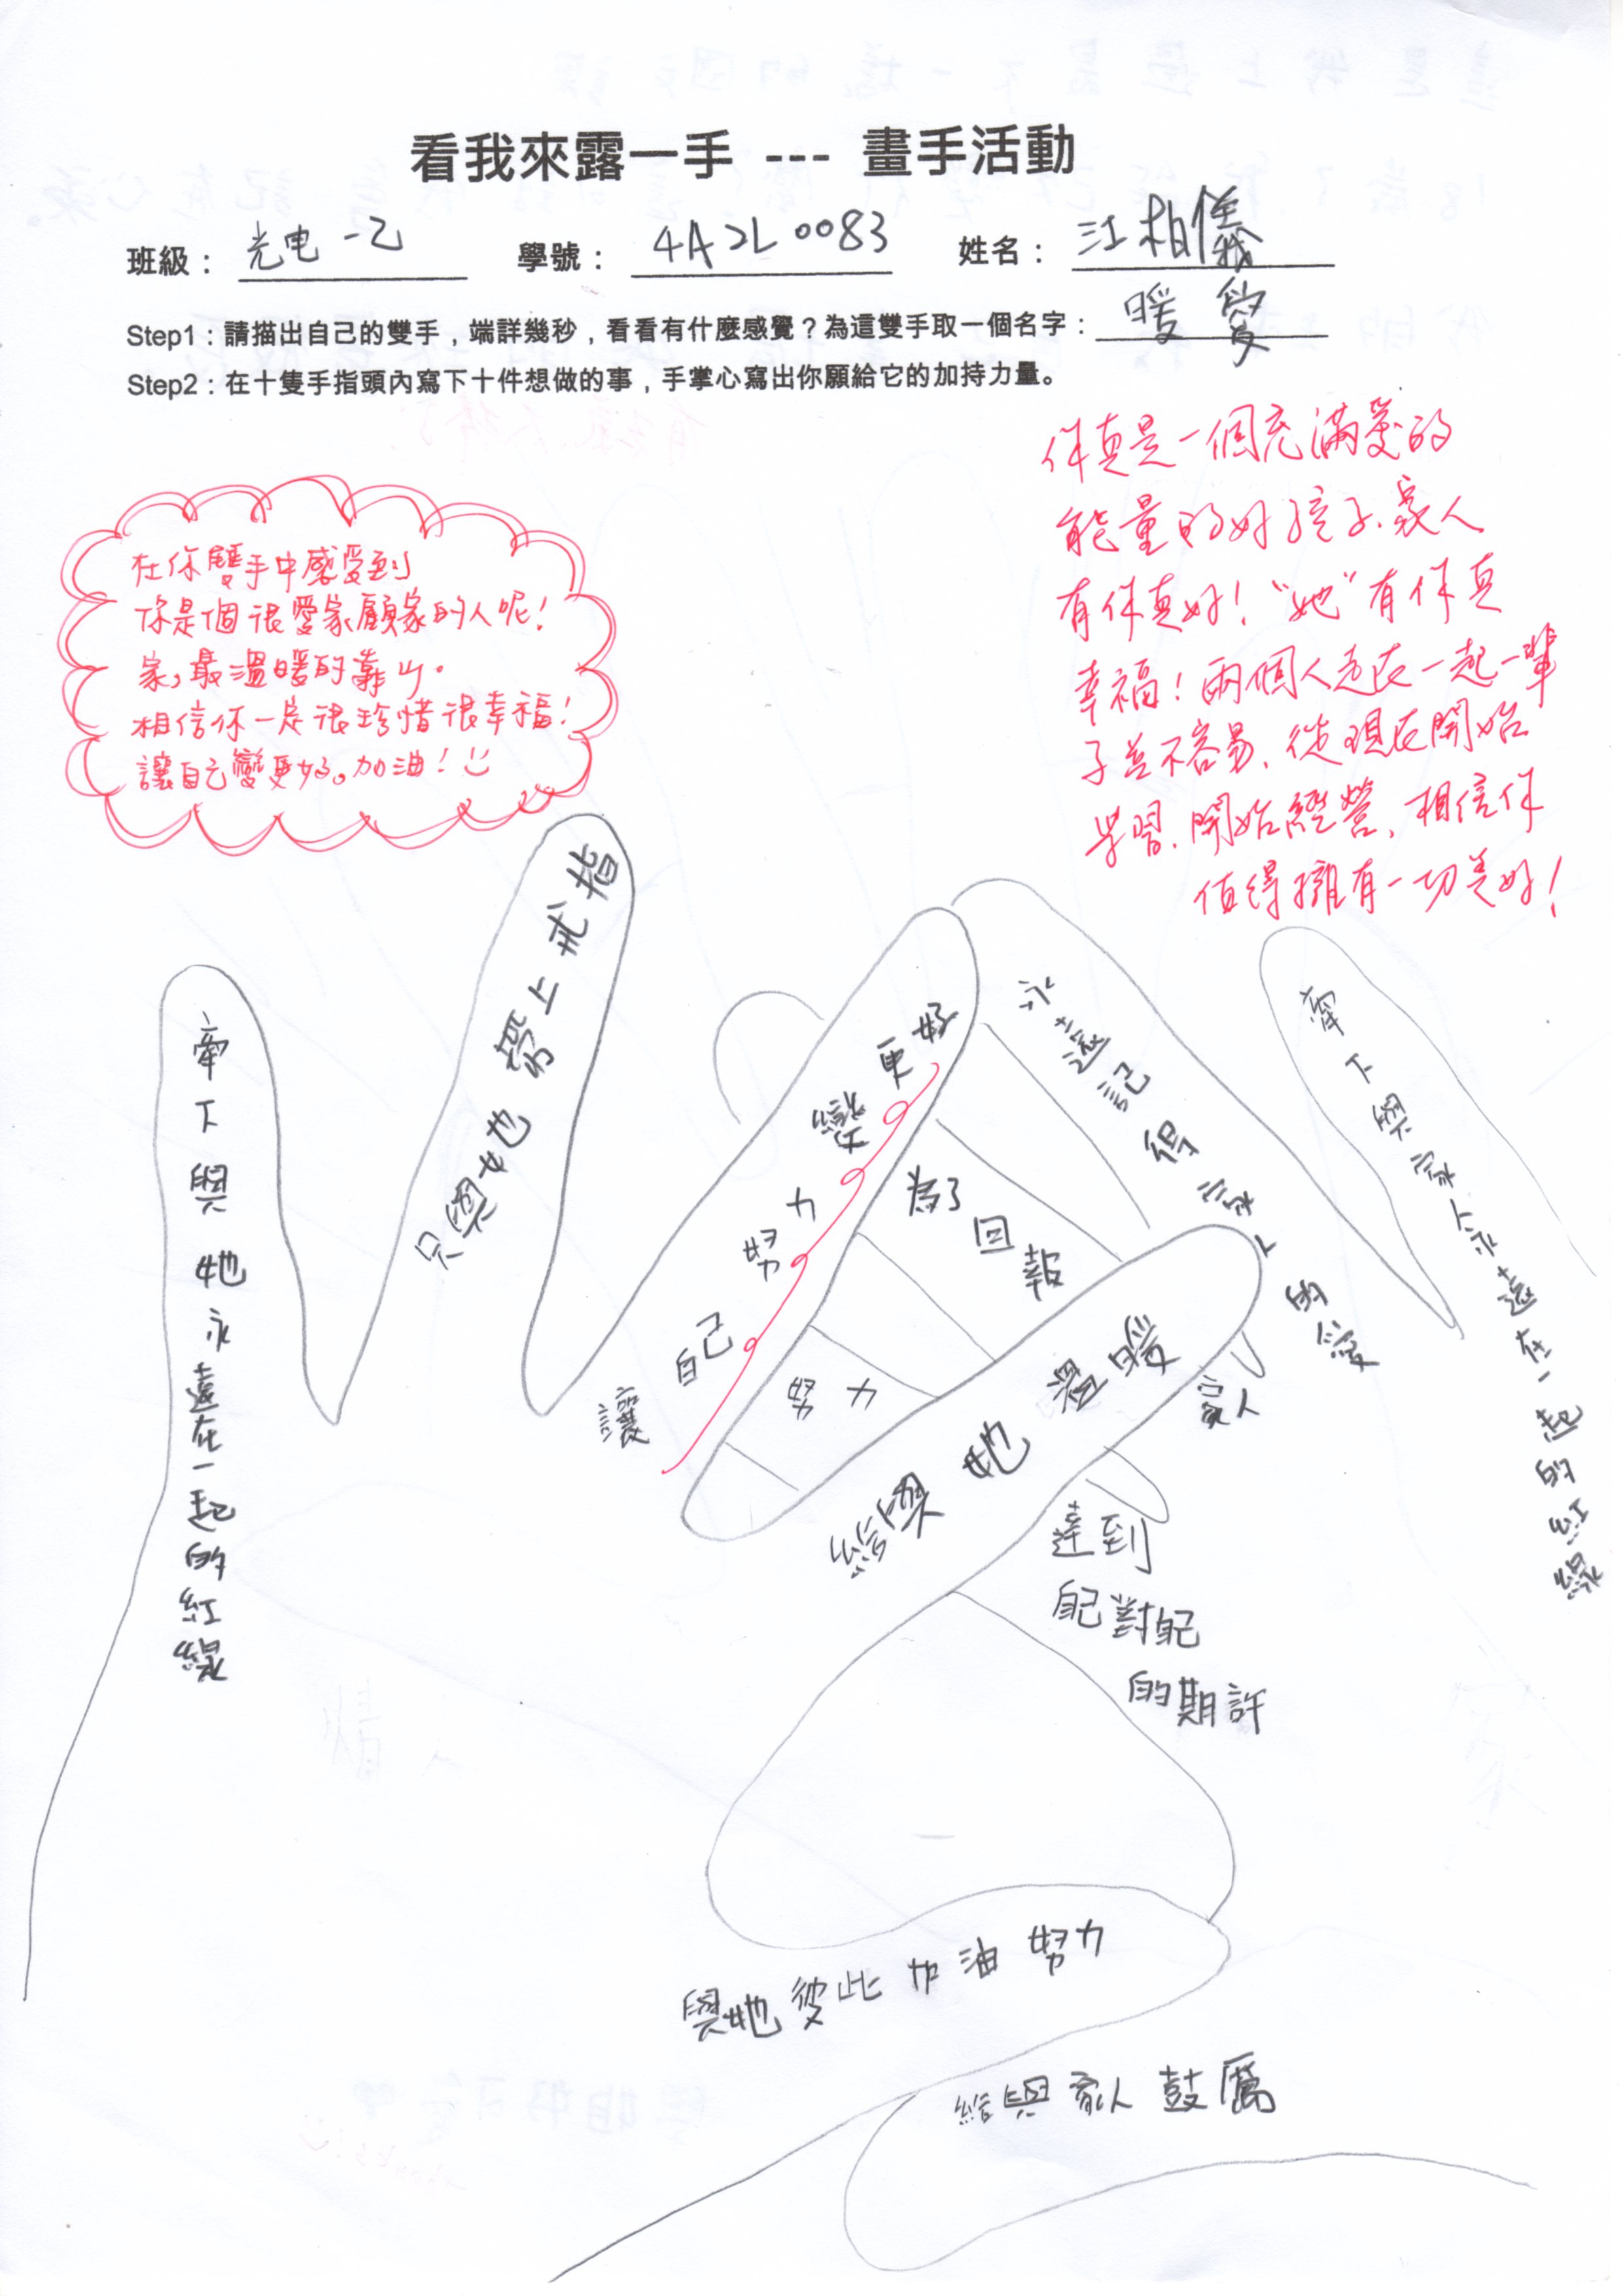 看我來露一手 --- 畫手活動
班級：光电一乙 學號：4A2L0083 姓名：江柏儀
Step1：請描出自己的雙手，端詳幾秒，看看有什麼感覺？為這雙手取一個名字：暖愛
Step2：在十隻手指頭內寫下十件想做的事，手掌心寫出你願給它的加持力量。
在你雙手中感受到
你是個很愛家顧家的人呢！
家，最溫暖的靠山。
相信你一定很珍惜很幸福！
讓自己變更好。加油！
你真是一個充滿愛的
能量的好孩子、家人
有你真好！“她”有你真
幸福！兩個人走在一起一輩
子並不容易、從現在開始
學習、開始經營、相信你
值得擁有一切美好！
牽下與她永遠在一起的紅線
只與她帶上戒指
讓自己努力變更好
永遠記得家人的愛
牽下與家人永遠在一起的紅線
為了回報
家人
努力
給與她溫暖
達到
自己對自己
的期許
與她彼此加油努力
給與家人鼓厲